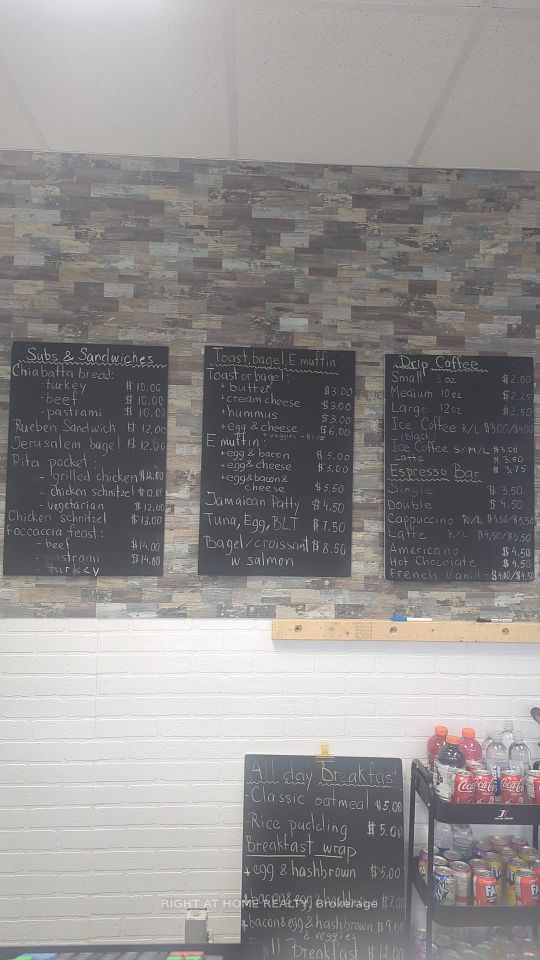 Subs & Sandwiches
Chiabatta bread:
-turkey $10.00
-beef $10.00
-pastrami $10.00
Rueben Sandwich $12,00
Jerusalem bagel $12,00
Pita pocket:
- grilled chicken
- chicken schnitzel
- vegetarian
Chicken schnitzel $13,00
Foccaccia feast:
- beef $14.00
- pastrami $14.00
- turkey
Toast, bagel, E muffin
Toast or bagel:
+ butter $3.00
+ cream cheese $3.00
+ hummus $3.00
+ egg & cheese $6.00
+ veggies
E muffin:
+egg & bacon $5.00
+egg & cheese $5,00
+egg & bacon &
cheese $5,50
Jamaican Patty $4.50
Tuna, Egg, BLT $7.50
Bagel/croissant $8.50
w salmon
Drip Coffee
Small $2,00
Medium 10oz $2.25
Large 12oz $2.50
Ice Coffee R/L $3.00/$4.00
(black)
Ice Coffee S/M/L $3.00
Latte $3.50
$3.75
Espresso Bar
Single $3.50
Double $4.50
Cappuccino R/L $4.50/$5.50
Latte R/L $4.50/$5.50
Americano $4.50
Hot Chocolate $4.50
French Vanilla
All day Breakfast
-Classic oatmeal $5,00
-Rice pudding $5.00
Breakfast wrap
+egg & hashbrown $5.00
+bacon & egg & hashbrown $9.00
& veggies
Full Breakfast
RIGHT AT HOME REALTY, Brokerage
Coca-Cola